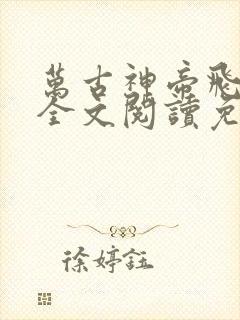 萬古神帝飛
全文閱讀免
徐婷鈺